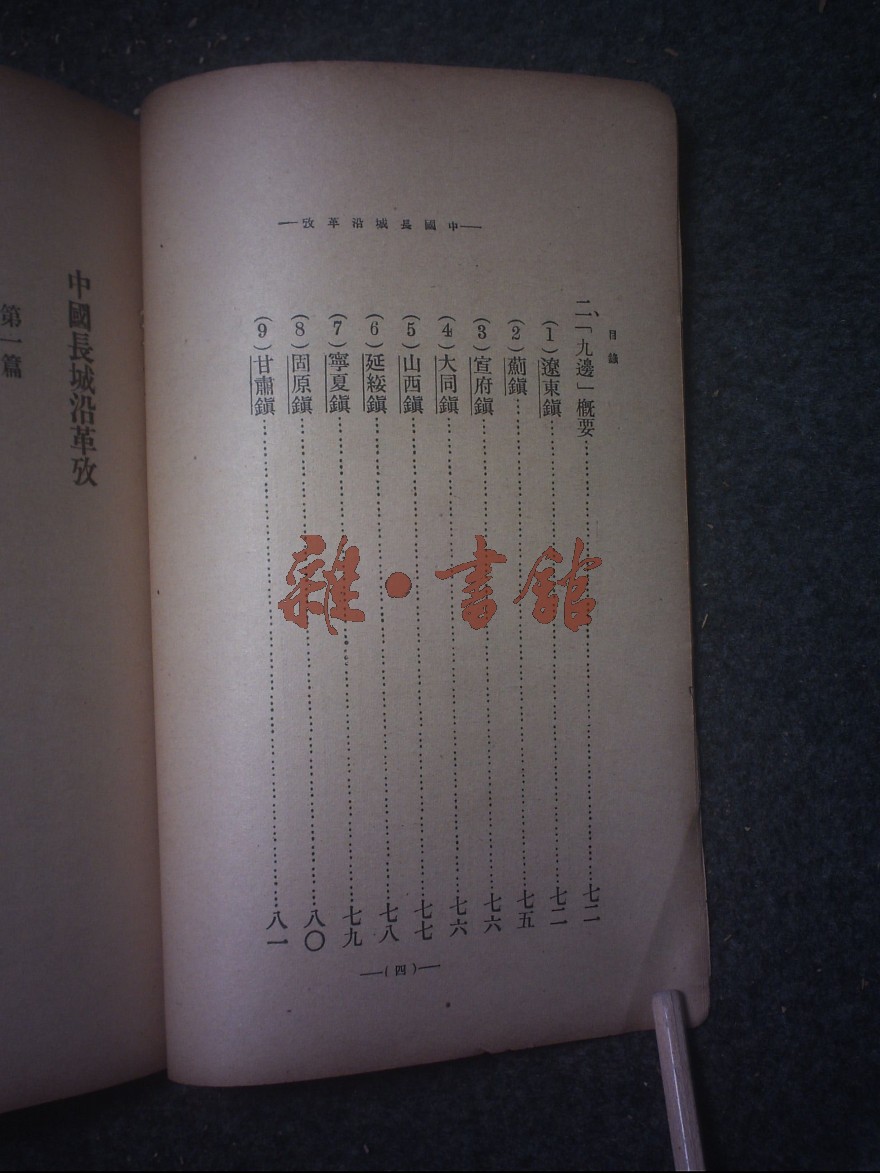 中國長城沿革攷
目錄
二、「九邊」概要七二
(1)遼東鎮七二
(2)薊鎮七五
(3)宣府鎮七六
(4)大同鎮七六
(5)山西鎮七七
(6)延綏鎮七八
(7)寧夏鎮七九
(8)固原鎮八〇
(9)甘肅鎮八一
(四)
中國長城沿革攷
第一篇
雜·書館